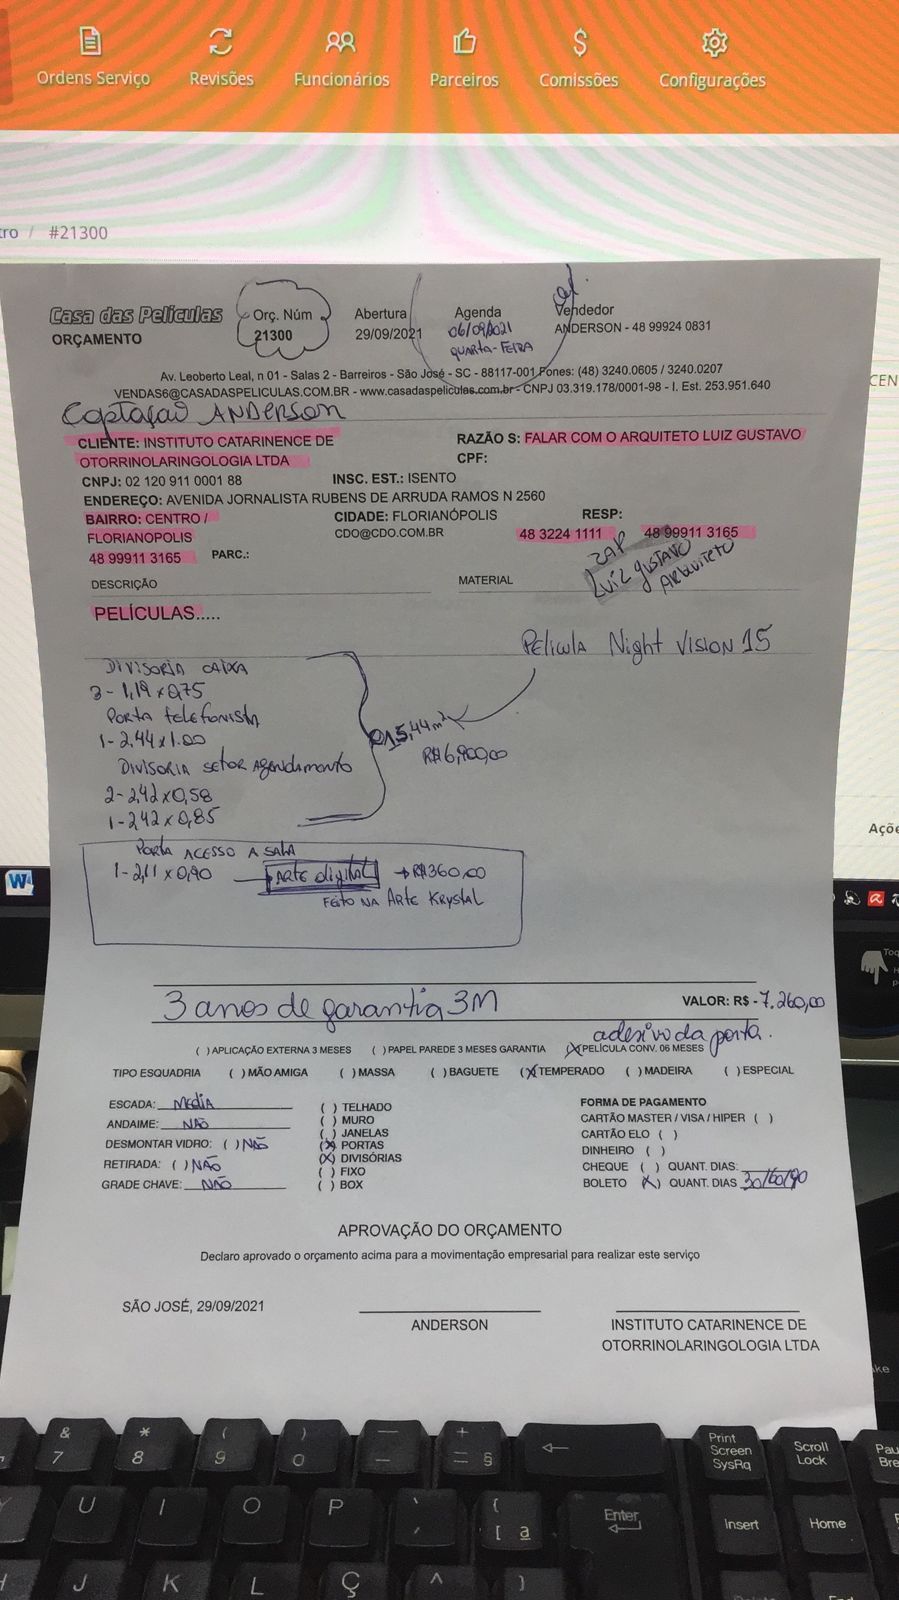 Ordens Serviço Revisões Funcionários Parceiros Comissões Configurações
tro / #21300
Casa das Películas
ORÇAMENTO
Orç. Núm
21300
Abertura
29/09/2021
Agenda
06/09/2021
QUARTA-FEIRA
Vendedor
ANDERSON - 48 99924 0831
Av. Leoberto Leal, n 01 - Salas 2 - Barreiros - São José - SC - 88117-001 Fones: (48) 3240.0605 / 3240.0207
VENDAS6@CASADASPELICULAS.COM.BR - www.casadaspeliculas.com.br - CNPJ 03.319.178/0001-98 - I. Est. 253.951.640
CEN
Captação ANDERSON
CLIENTE: INSTITUTO CATARINENCE DE
OTORRINOLARINGOLOGIA LTDA
RAZÃO S: FALAR COM O ARQUITETO LUIZ GUSTAVO
CPF:
CNPJ: 02 120 911 0001 88 INSC. EST.: ISENTO
ENDEREÇO: AVENIDA JORNALISTA RUBENS DE ARRUDA RAMOS N 2560
BAIRRO: CENTRO /
FLORIANOPOLIS
CIDADE: FLORIANÓPOLIS
CDO@CDO.COM.BR
RESP:
48 3224 1111 48 99911 3165
48 99911 3165 PARC.:
ZAP
Luiz gustavo
ARquiteto
DESCRIÇÃO MATERIAL
PELÍCULAS.....
Película Night Vision 15
DIVISORIA CAIXA
3 - 1,19 x 0,75
PORTA telefonista
1 - 2,44 x 1.00
DIVISORIA SETOR AgendAmento
2 - 2,42 x 0,58
1 - 2,42 x 0,85
15,44 m²
R$ 6,900,00
Ações
PORTA ACESSO A SALA
1 - 2,11 x 0,90 → ARTE digital → R$360,00
FEITO NA ARTE KRYSTAL
W
3 anos de garantia 3M
VALOR: R$ - 7.260,00
adesivo da porta.
( ) APLICAÇÃO EXTERNA 3 MESES ( ) PAPEL PAREDE 3 MESES GARANTIA (X) PELÍCULA CONV. 06 MESES
TIPO ESQUADRIA ( ) MÃO AMIGA ( ) MASSA ( ) BAGUETE (X) TEMPERADO ( ) MADEIRA ( ) ESPECIAL
ESCADA: Media
ANDAIME: NÃO
DESMONTAR VIDRO: ( ) NÃO
RETIRADA: ( ) NÃO
GRADE CHAVE: NÃO
( ) TELHADO
( ) MURO
( ) JANELAS
(X) PORTAS
(X) DIVISÓRIAS
( ) FIXO
( ) BOX
FORMA DE PAGAMENTO
CARTÃO MASTER / VISA / HIPER ( )
CARTÃO ELO ( )
DINHEIRO ( )
CHEQUE ( ) QUANT. DIAS:
BOLETO (X) QUANT. DIAS 30/60/90
APROVAÇÃO DO ORÇAMENTO
Declaro aprovado o orçamento acima para a movimentação empresarial para realizar este serviço
SÃO JOSÉ, 29/09/2021
ANDERSON
INSTITUTO CATARINENCE DE
OTORRINOLARINGOLOGIA LTDA
& * ( ) — + ←
7 8 9 0 - = §
Print
Screen
SysRq
Scroll
Lock
Pau
Bre
U I O P [ ª
Enter
Insert Home
J K L Ç